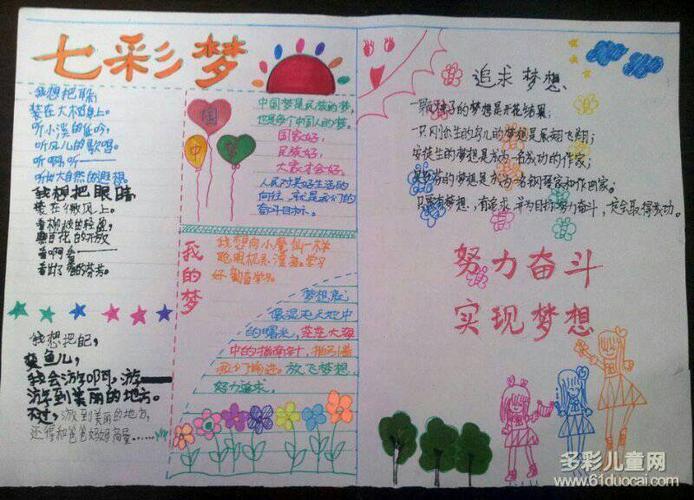 七彩梦
我想把耳
装在大树身上。
听小溪的低吟,
听风儿的歌唱。
听啊听——
听大自然的
我想把眼睛
装在
百花的开放
看啊看——
的芬芳。
我想把
变鱼儿,
我会游啊,游——
游到美丽的地方。
不过,游到美丽的地方,
还得和爸爸妈妈商量……
中国梦
中国梦是民族的梦,
也是每个中国人的梦。
国家好,
民族好,
大家才会好,
人民对美好生活的
向往,就是我们的
奋斗目标。
我的梦
我想向小魔仙一样
聪明机灵
梦想是
的曙光,茫茫大海
中的指南针,指引着
我们前进。放飞梦想,
努力追求。
追求梦想
一颗种子的梦想是开花结果;
一只刚出生的鸟儿的梦想是展翅飞翔;
安徒生的梦想是成为一名成功的作家;
的梦想是成为一名钢琴家和作曲家。
只要有梦想,有追求,并为目标努力奋斗,一定会取得成功。
努力奋斗
实现梦想
多彩儿童网
www.61duocai.com